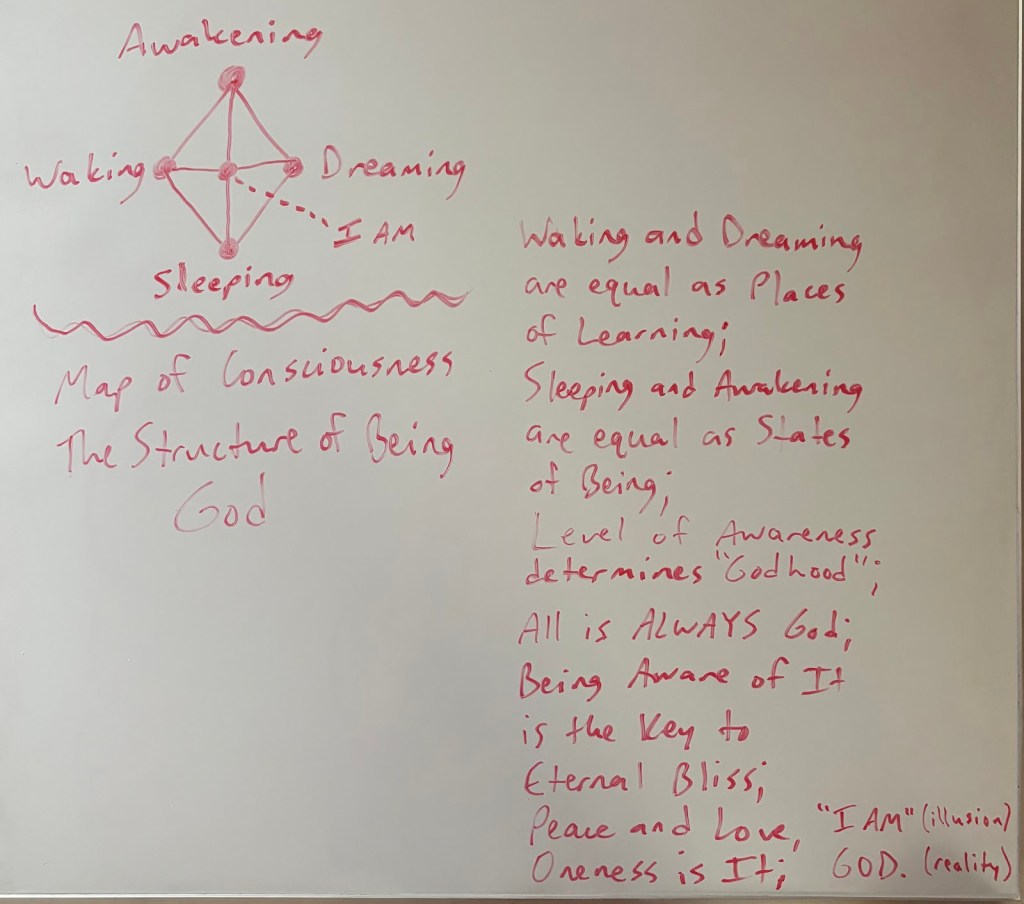 Awakening
Waking
Dreaming
I AM
Sleeping
Map of Consciousness
The Structure of Being
God
Waking and Dreaming
are equal as Places
of Learning;
Sleeping and Awakening
are equal as States
of Being;
Level of Awareness
determines "Godhood";
All is ALWAYS God;
Being Aware of It
is the Key to
Eternal Bliss;
Peace and Love,
Oneness is It;
"I AM" (illusion)
GOD. (reality)